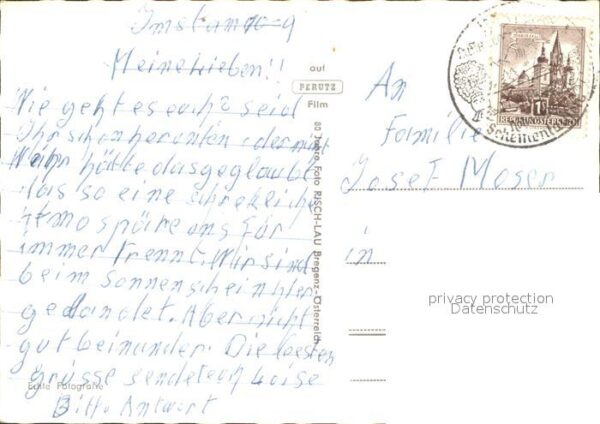 Meine Lieben!!
Wie geht es euch? seid
Ihr schon herunten - der nicht
hätte das geglaubt
das so eine schrekliche
Atmospäre uns für
immer trennt. Wir sind
beim Sonnenschein hier
gelandet. Aber nicht
gut beinander. Die besten
grüsse sendet euch Loise
Bitte Antwort
Echte Fotografie
auf
PERUTZ
Film
80 Jahre Foto RISCH-LAU Bregenz-Österreich
An
Familie
Josef Moser
in
1S
REPUBLIK ÖSTERREICH
privacy protection
Datenschutz